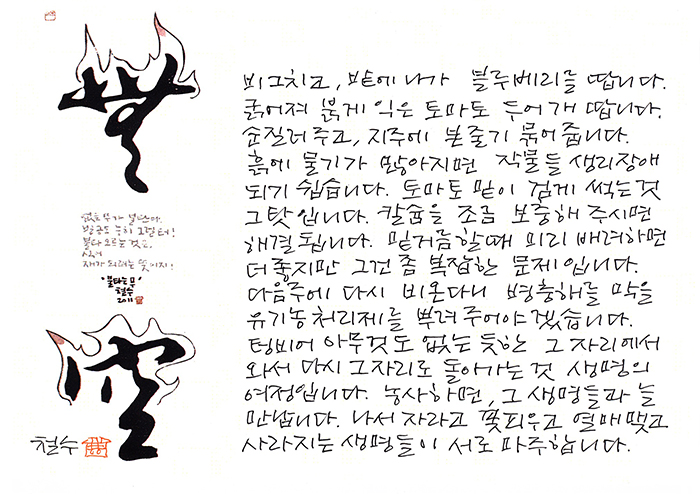 無
없는 무가 불탄다.
불타 오르는 것은,
식어
재가 되려는 뜻이지!
"불타는 무"
철수
2011
空
철수
비 그치고, 밭에 나가 블루베리를 땁니다.
굵어져 붉게 익은 토마토 두어 개 땁니다.
순 질러 주고, 지주에 본줄기 묶어 줍니다.
흙에 물기가 많아지면 작물들 생리장애
되기 쉽습니다. 토마토 밑이 검게 썩는 것
그 탓입니다. 칼슘을 조금 보충해 주시면
해결됩니다. 밑거름할 때 미리 배려하면
더 좋지만 그건 좀 복잡한 문제입니다.
다음주에 다시 비온다니 병충해를 막을
유기농처리제를 뿌려 주어야겠습니다.
텅비어 아무것도 없는 듯한 그 자리에서
와서 다시 그 자리로 돌아가는 것 생명의
여정입니다. 농사하면, 그 생명들과 늘
만납니다. 나서 자라고 꽃피우고 열매맺고
사라지는 생명들이 서로 파주합니다.